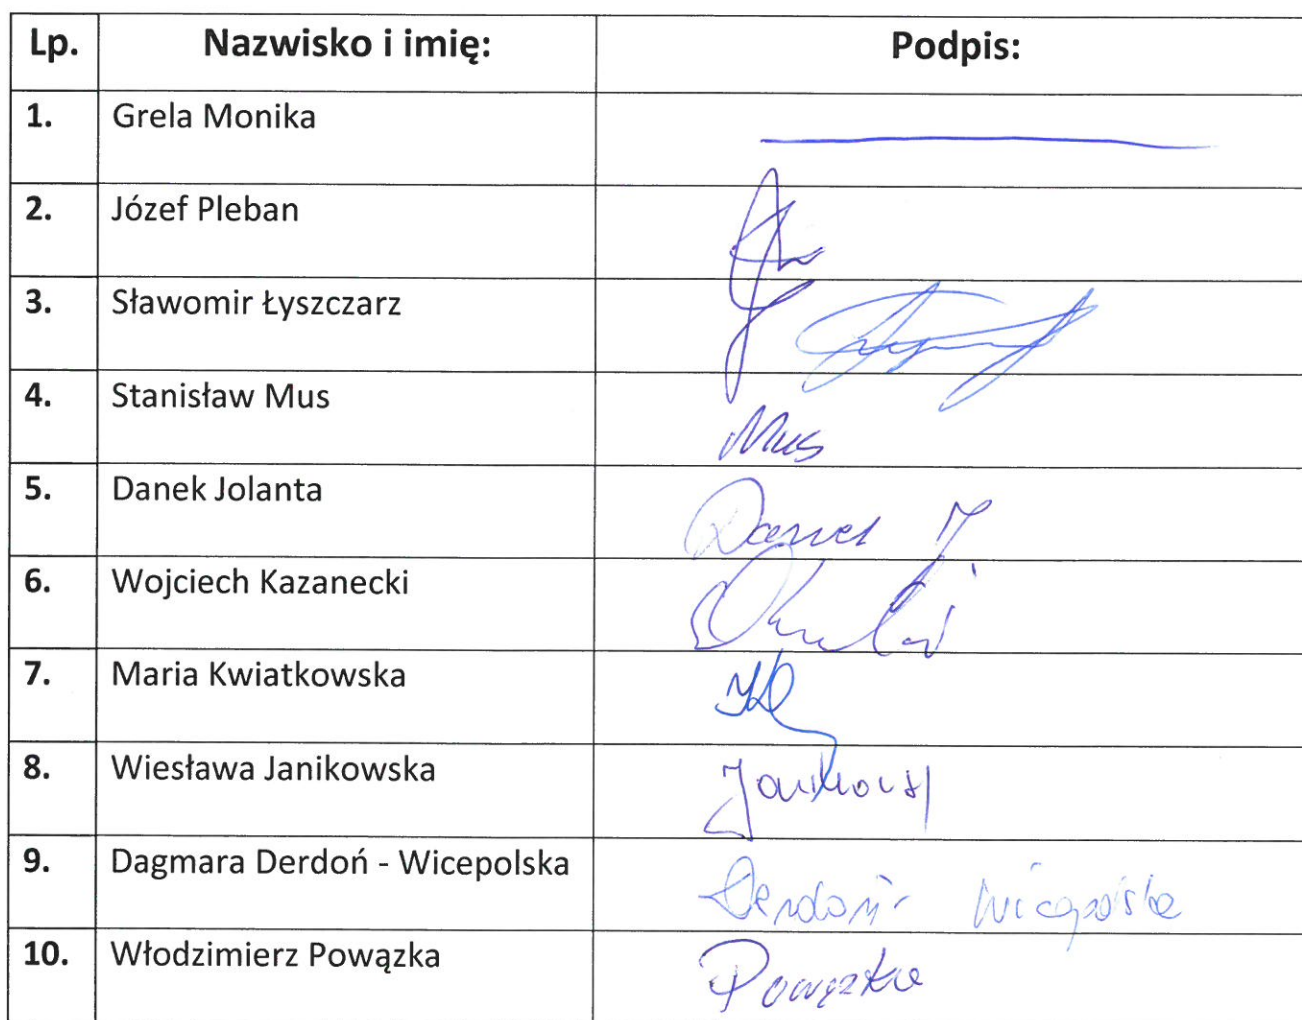 Lp. Nazwisko i imię: Podpis:
1. Grela Monika
2. Józef Pleban
3. Sławomir Łyszczarz
4. Stanisław Mus Mus
5. Danek Jolanta Danek J
6. Wojciech Kazanecki
7. Maria Kwiatkowska
8. Wiesława Janikowska
9. Dagmara Derdoń - Wicepolska Derdoń- Wicepolska
10. Włodzimierz Powązka Powązka